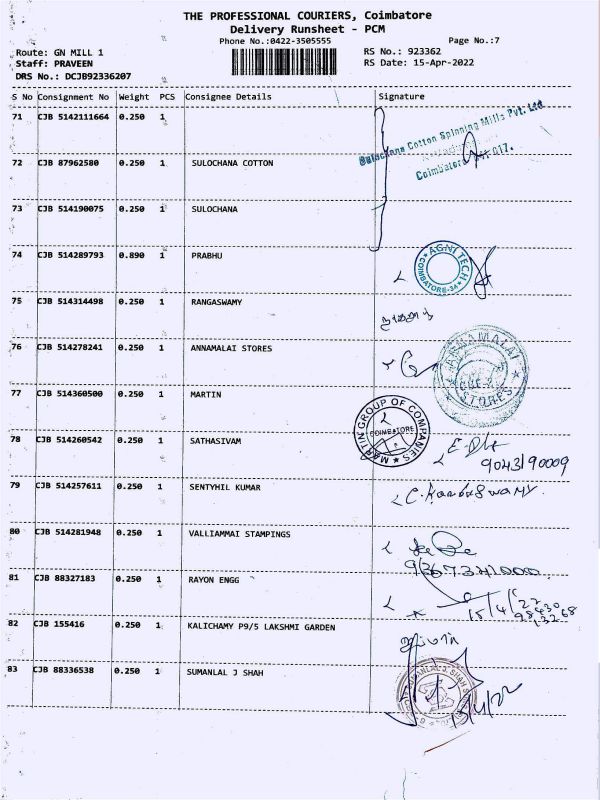 THE PROFESSIONAL COURIERS, Coimbatore
Delivery Runsheet - PCM
Phone No.:0422-3505555
Page No.:7
Route: GN MILL 1
RS No.: 923362
Staff: PRAVEEN
RS Date: 15-Apr-2022
DRS No.: DCJB92336207
S No Consignment No Weight PCS Consignee Details Signature
71 CJB 5142111664 0.250 1
Sulochana Cotton Spinning Mills Pvt. Ltd
Coimbatore
72 CJB 87962580 0.250 1 SULOCHANA COTTON
73 CJB 514190075 0.250 1 SULOCHANA
74 CJB 514289793 0.890 1 PRABHU
AGNI TECH COIMBATORE-34
75 CJB 514314498 0.250 1 RANGASWAMY
76 CJB 514278241 0.250 1 ANNAMALAI STORES
ANNAMALAI STORES
77 CJB 514360500 0.250 1 MARTIN
MARTIN GROUP OF COMPANIES COIMBATORE
78 CJB 514260542 0.250 1 SATHASIVAM
9043190009
79 CJB 514257611 0.250 1 SENTYHIL KUMAR
80 CJB 514281948 0.250 1 VALLIAMMAI STAMPINGS
81 CJB 88327183 0.250 1 RAYON ENGG
15/4/22
82 CJB 155416 0.250 1 KALICHAMY P9/5 LAKSHMI GARDEN
83 CJB 88336538 0.250 1 SUMANLAL J SHAH
SUMANLAL J. SHAH